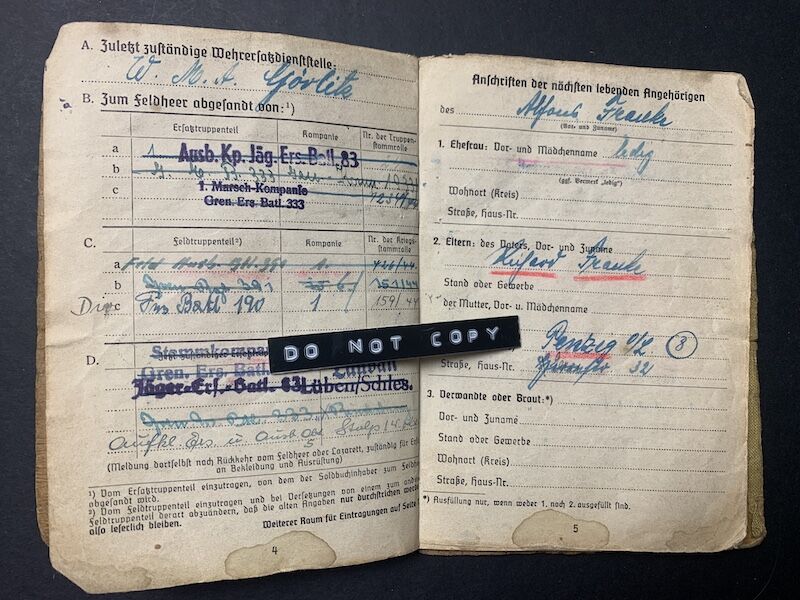 A. Zuletzt zuständige Wehrersatzdienststelle:
W. M. A. Görlitz
B. Zum Feldheer abgesandt von:¹)
Ersatztruppenteil Kompanie Nr. der Truppen-
stammrolle
a 1. Ausb. Kp. Jäg. Ers. Batl. 83
b
1. Marsch-Kompanie
c
Gren. Ers. Batl. 333
C. Feldtruppenteil²) Kompanie Nr. der Kriegs-
stammrolle
a
b 151/44
c Batl 190 1 159/44
D. Stammkompanie
Gren. Ers. Batl.
Jäger-Ers.-Batl. 83 Lüben/Schles.
Aufkl. Ers. u. Ausb. Abt. 5 Stolp
(Meldung dortselbst nach Rückkehr vom Feldheer oder Lazarett, zuständig für
an Bekleidung und Ausrüstung)
¹) Vom Ersatztruppenteil einzutragen, von dem der Soldbuchinhaber zum
abgesandt wird.
²) Vom Feldtruppenteil einzutragen und bei Versetzungen von einem zum
Feldtruppenteil derart abzuändern, daß die alten Angaben nur durchstrichen
also leserlich bleiben.
Weiterer Raum für Eintragungen auf Seite
4
DO NOT COPY
Anschriften der nächsten lebenden Angehörigen
des Alfons Franke
(Vor- und Zuname)
1. Ehefrau: Vor- und Mädchenname ledig
(ggf. Vermerk „ledig“)
Wohnort (Kreis)
Straße, Haus-Nr.
2. Eltern: des Vaters, Vor- und Zuname
Richard Franke
Stand oder Gewerbe
der Mutter, Vor- u. Mädchenname
Penzig O/L 3
Straße, Haus-Nr. 32
3. Verwandte oder Braut:*)
Vor- und Zuname
Stand oder Gewerbe
Wohnort (Kreis)
Straße, Haus-Nr.
*) Ausfüllung nur, wenn weder 1. noch 2. ausgefüllt sind.
5